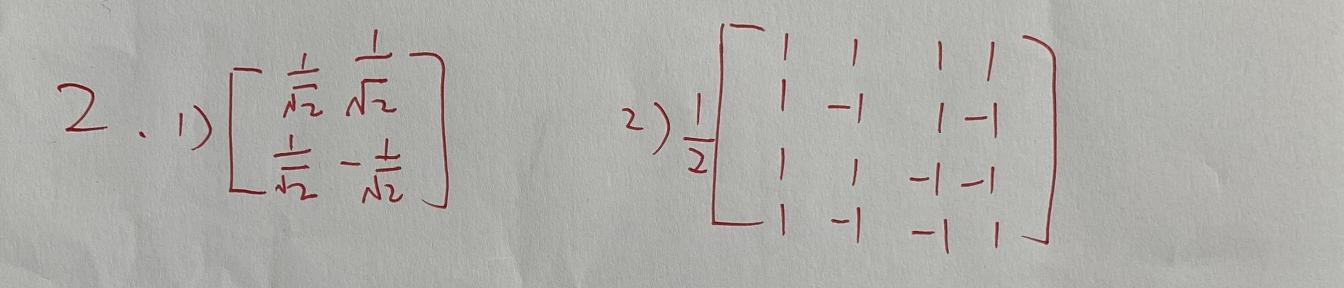 2. 1) \begin{bmatrix} \frac{1}{\sqrt{2}} & \frac{1}{\sqrt{2}} \\ \frac{1}{\sqrt{2}} & -\frac{1}{\sqrt{2}} \end{bmatrix} 2) \frac{1}{2} \begin{bmatrix} 1 & 1 & 1 & 1 \\ 1 & -1 & 1 & -1 \\ 1 & 1 & -1 & -1 \\ 1 & -1 & -1 & 1 \end{bmatrix}